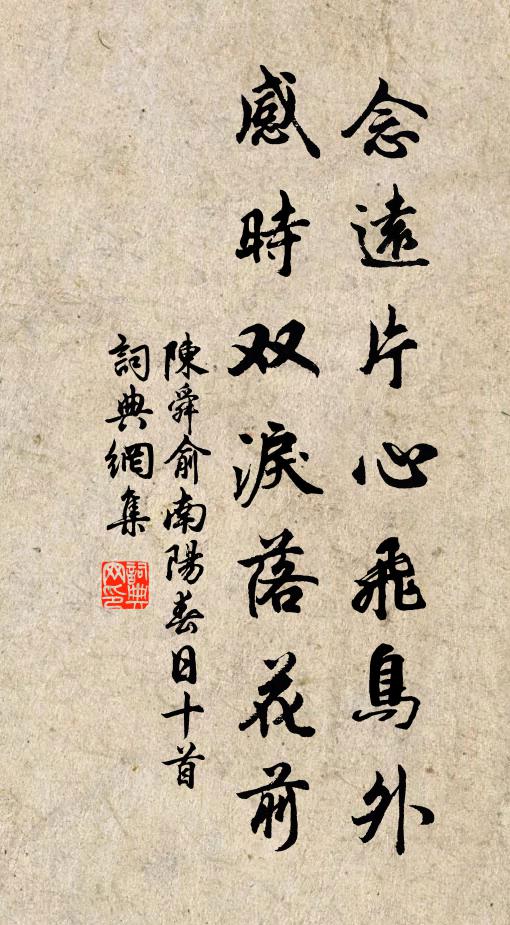 念遠片心飛鳥外
感時双淚落花前
陳舜俞南陽春日十首
詞典網集
詞典
网印